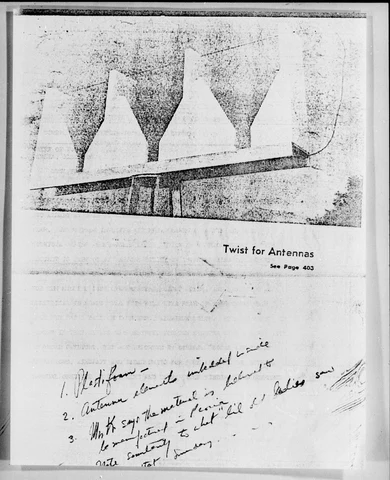 Twist for Antennas
See Page 403
1. Plastifoam -
2. Antenna elements imbedded inside
3. Mr K says the material is believed to
be manufactured in Peoria
Note similarity to what "
saw
Sunday. - - -